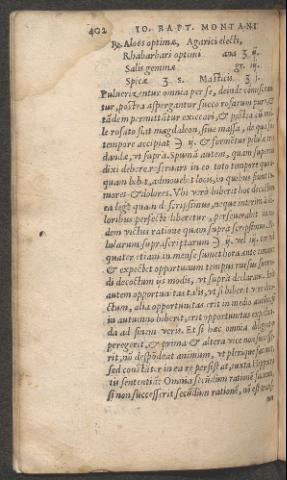 402 IO. BAPT. MONTANI
℞. Aloës optimæ, Agarici electi,
Rhabarbari optimi ana ʒ ij.
Salis gemmæ gr. iij.
Spicæ ʒ s. Masticis ʒ j.
Puluerizentur omnia per se, deinde
tur, postea aspergantur succo rosarum
tādem permittātur exiccari, & postea cū
le rosato fiat magdaleon, siue massa, de qua
tempore accipiat ℈ ij. & formētur pilulæ
dandæ, vt suprà. Spumā autem, quam suprà
dixi debere seruari in eo toto tempore
quam bibit, admoueat locis, in quibus sunt
mores & dolores. Vbi verò biberit hoc decoctum
ea lege quam descripsimus, neque interim à
loribus perfectè liberetur, perseuerabit in
dem victus ratione quam suprà scripsimus.
lularum suprascriptarum ℈ ij. vel iij.
quater etiam in mense sumet hora ante
& expectet opportunum tempus rursus
di decoctum ijs modis, vt suprà declaraui.
autem opportunitas talis, vt si biberit
ctum, alia opportunitas erit in medio
in autumno biberit, erit opportunitas
da ad finem veris. Et si hæc omnia
peregerit, & prima & altera vice non
rit, nō despōdeat animum, vt plerique faciunt,
sed constāter in ea re persistat, iuxta Hippocra
tis sententiā: Omnia secūdum rationē
si non successerit secūdum rationē, nō est